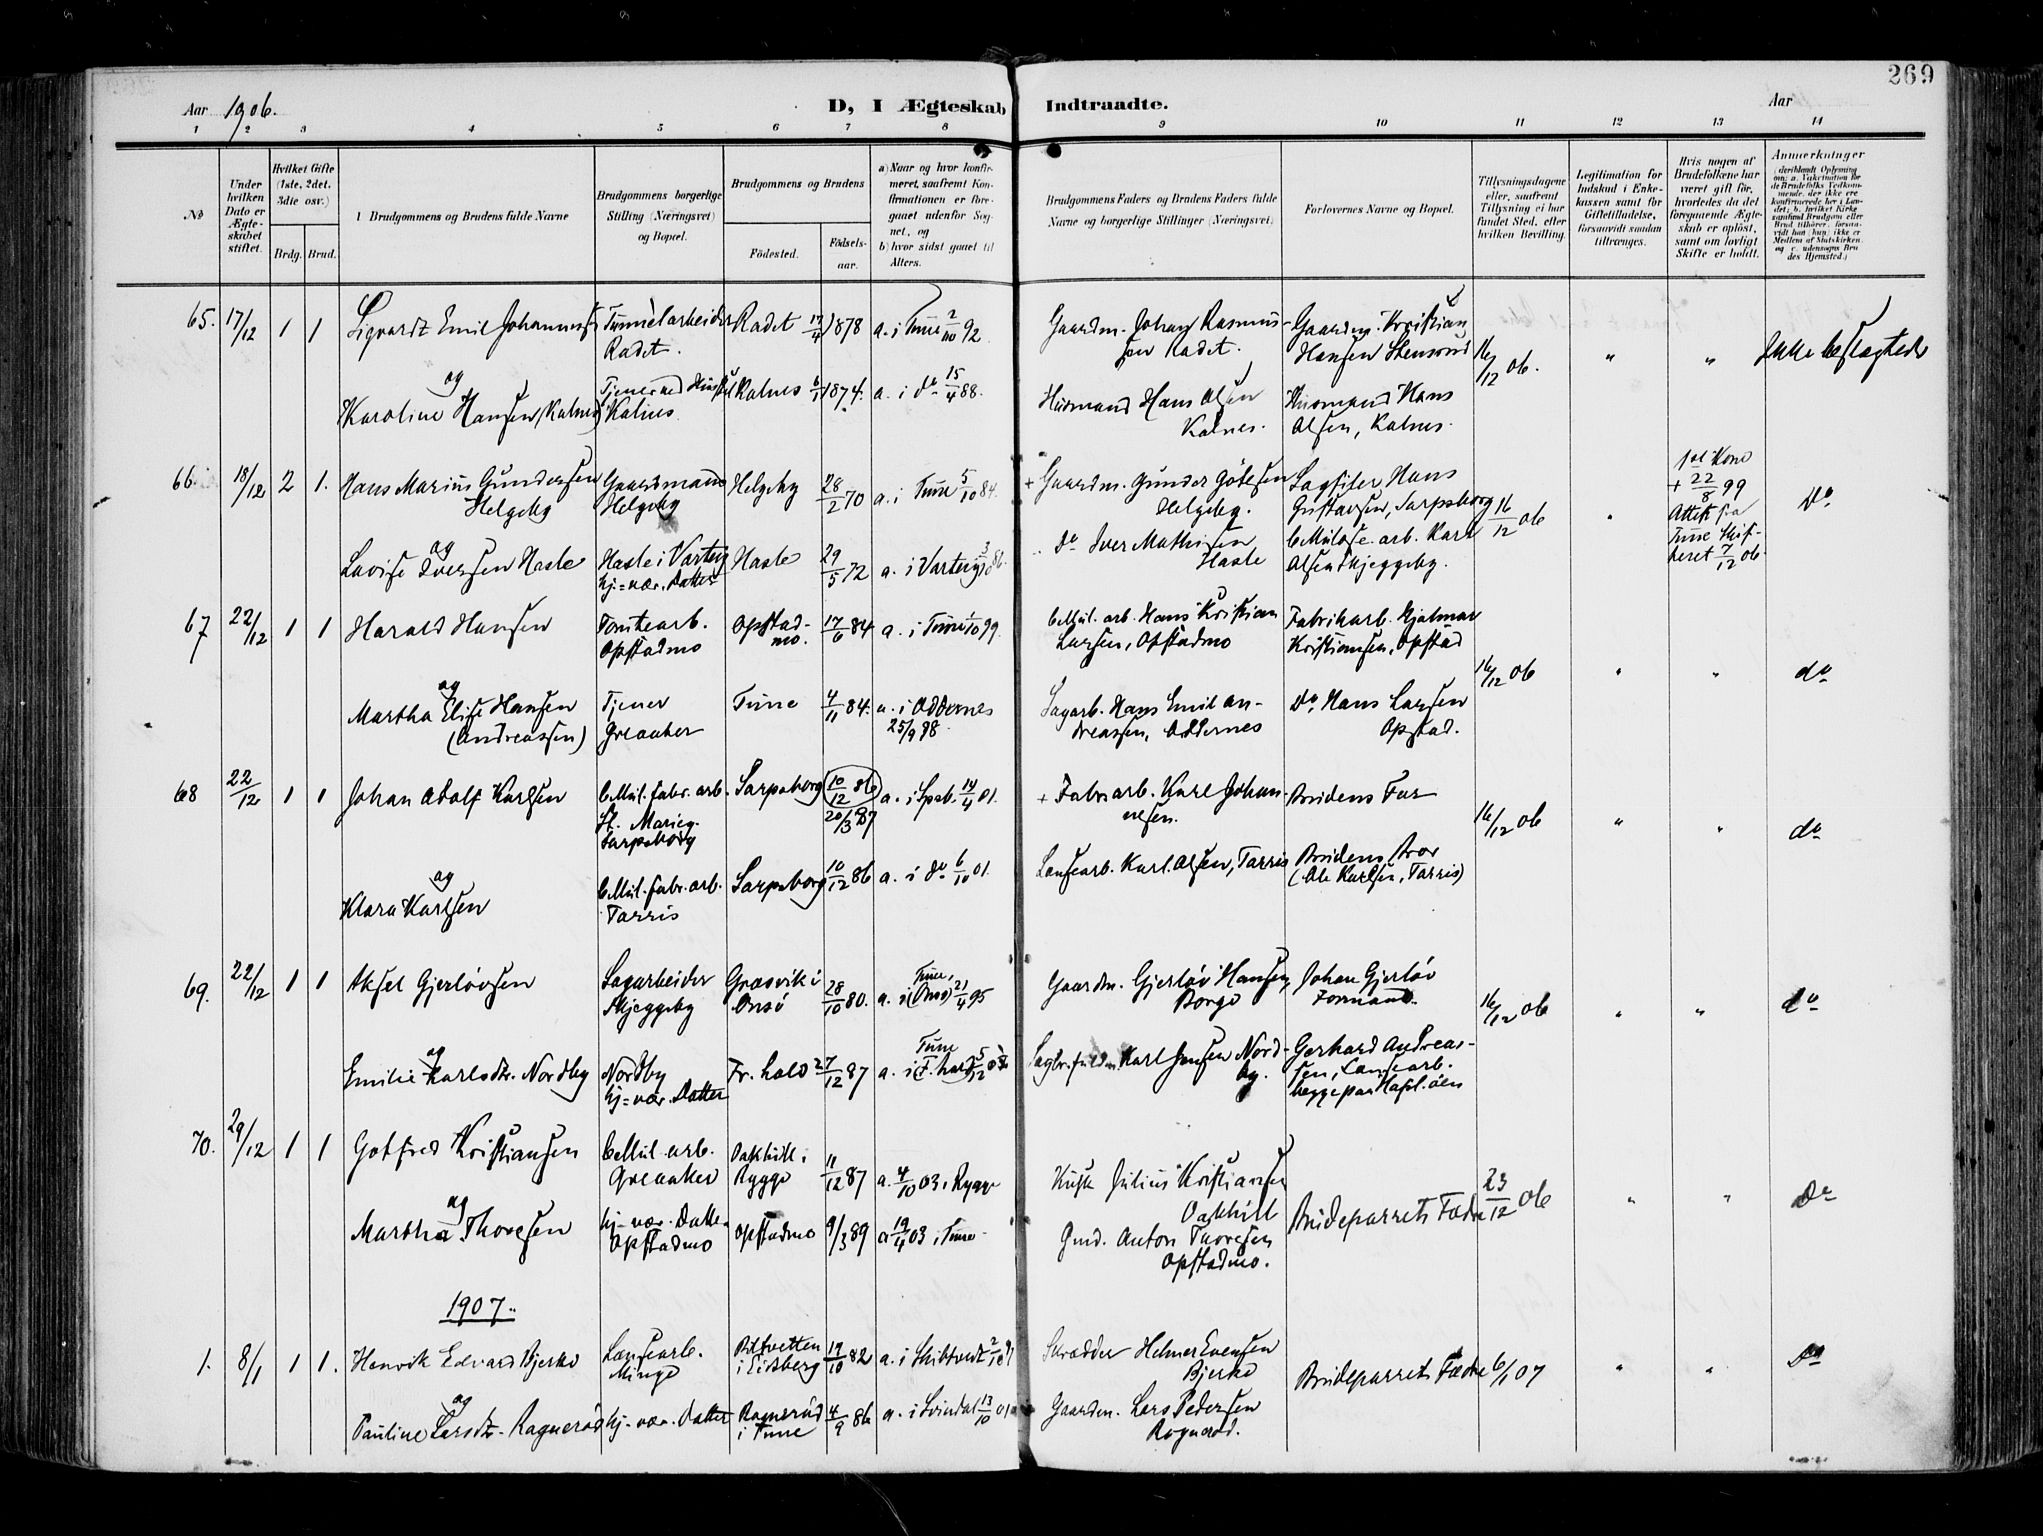 269
Aar 1906.
D, I Ægteskab Indtraadte.
Aar
1 2 3 4 5 6 7 8 9 10 11 12 13 14
No
Under hvilken Dato er Ægteskabet stiftet.
Hvilket Gifte (1ste, 2det, 3die osv.)
Brdg. Brud.
Brudgommens og Brudens fulde Navne
Brudgommens borgerlige Stilling (Næringsvei) og Bopæl.
Brudgommens og Brudens
Fødested.
Fødselsaar.
a) Naar og hvor konfirmeret, saafremt Konfirmationen er foregaaet udenfor Sognet, og
b) hvor sidst gaaet til Alters.
Brudgommens Faders og Brudens Faders fulde Navne og borgerlige Stillinger (Næringsvei)
Forlovernes Navne og Bopæl.
Tillysningsdagene eller, saafremt Tillysning ei har fundet Sted, efter hvilken Bevilling.
Legitimation for Indskud i Enkekassen samt for Giftetilladelse, forsaavidt saadan tiltrænges.
Hvis nogen af Brudefolkene har været gift før, hvorledes da det foregaaende Ægteskab er opløst, samt om lovligt Skifte er holdt.
Anmerkninger
65. 17/12 1 1 Sigvardt Emil Johannesen Tunnelarbeider Radet 17/4 1878 a. i Tune 2/10 92
Radet.
Gaardm. Johan Rasmussen Radet.
Gaardm. Kristian Hansen Stensrud
16/12 06. " " Ikke beslægtede
og
Karoline Hansen (Kalnes) Kalnes Kalnes 1874. a. i do 15/4 88.
Husmand Hans Olsen Kalnes.
Husmand Hans Olsen, Kalnes.
66. 18/12 2 1. Hans Marius Gundersen Helgeby Gaardmand Helgeby Helgeby 28/2 70 a. i Tune 5/10 84.
+ Gaardm. Gunder Götesen Helgeby.
Sagfiler Hans Gustavsen, Sarpsborg
16/12 06 "
1st Kone + 22/8 99 Attest fra Tune Skifteret 7/12 06.
Do
og
Lovise Iversen Hasle Hasle i Varteig hj=vær. Datter Hasle 29/5 72 a. i Varteig
Do Iver Mathisen Hasle
Cellulose. arb. Karl Olsen Skjeggeby.
67 22/12 1 1 Harald Hansen Tomtearb. Opstadmo Opstadmo. 17/6 84 a. i Tune 1/10 99.
Cellul. arb. Hans Kristian Larsen, Opstadmo
Fabrikarb. Hjalmar Kristiansen, Opstad
16/12 06 " " do
og
Martha Elise Hansen (Andreassen) Tjener Greaaker Tune 4/11 84. a. i Oddernes 25/9 98.
Sagarb. Hans Emil Andreassen, Oddernes
Do. Hans Larsen Opstad.
68 22/12 1 1 Johan Adolf Karlsen Cellul. fabr. arb. St. Marieg. Sarpsborg Sarpsborg 10/12 86 20/3 87 a. i Spsb. 14/4 01.
+ Fabr. arb. Karl Johannesen.
Brudens Far
16/12 06 " " do
og
Klara Karlsen Cellul. fabr. arb. Tarris Sarpsborg 10/12 86 a. i do 6/10 01.
Landsearb. Karl Olsen, Tarris
Brudens Bror (Ole Karlsen, Tarris)
69. 22/12 1 1 Aksel Gjerløvsen Sagarbeider Skjeggeby Græsvik i Onsö 28/10 80. a. i Tune, (Onsö) 21/4 95
Gaardm. Gjerløv Hansen, Borge
Johan Gjerløv Formand.
16/12 06 " " do
og
Emilie Karlsdtr. Nordby Nordby hj=vær. Datter Fr. hald 27/12 87 a. i Tune
Sagbr. fuldm. Karl Jensen Nordby.
Gerhard Andreassen, Landsearb. begge paa Hafsl. öen
70. 29/12 1 1 Gotfred Kristiansen Cellul. arb. Greaaker Oakhill i Rygge 11/12 87 a. 4/10 03 i Rygge
Kusk Julius Kristiansen Oakhill
Brudeparrets Fædre
23/12 06 " " Do
og
Martha Thoresen hj=vær. Datter Opstadmo Opstadmo 9/3 89 a. 19/4 03 i Tune
Gmd. Anton Thoresen Opstadmo.
1907.
1. 8/1 1 1. Henrik Edvard Bjerke Landsearb. Minge i Eidsberg 19/10 82 a. i Skibtvedt
Skrædder Helmer Evensen Bjerke
Brudeparrets Fædre
6/1 07 " " Do
og
Pauline Larsdtr. Ragnerød hj=vær. Datter Ragnerød i Tune 4/9 86 a. i Svindal 13/10 01
Gaardm. Lars Pedersen Ragnerød.